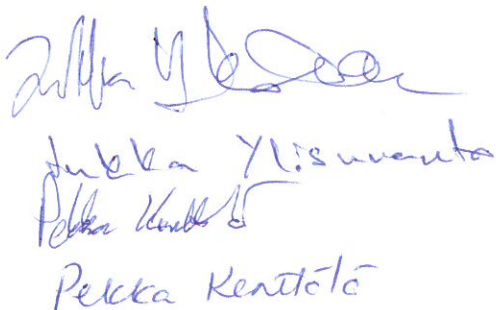 Jukka Yl
Jukka Ylisuvanto
Pekka Kenttälä
Pekka Kenttälä